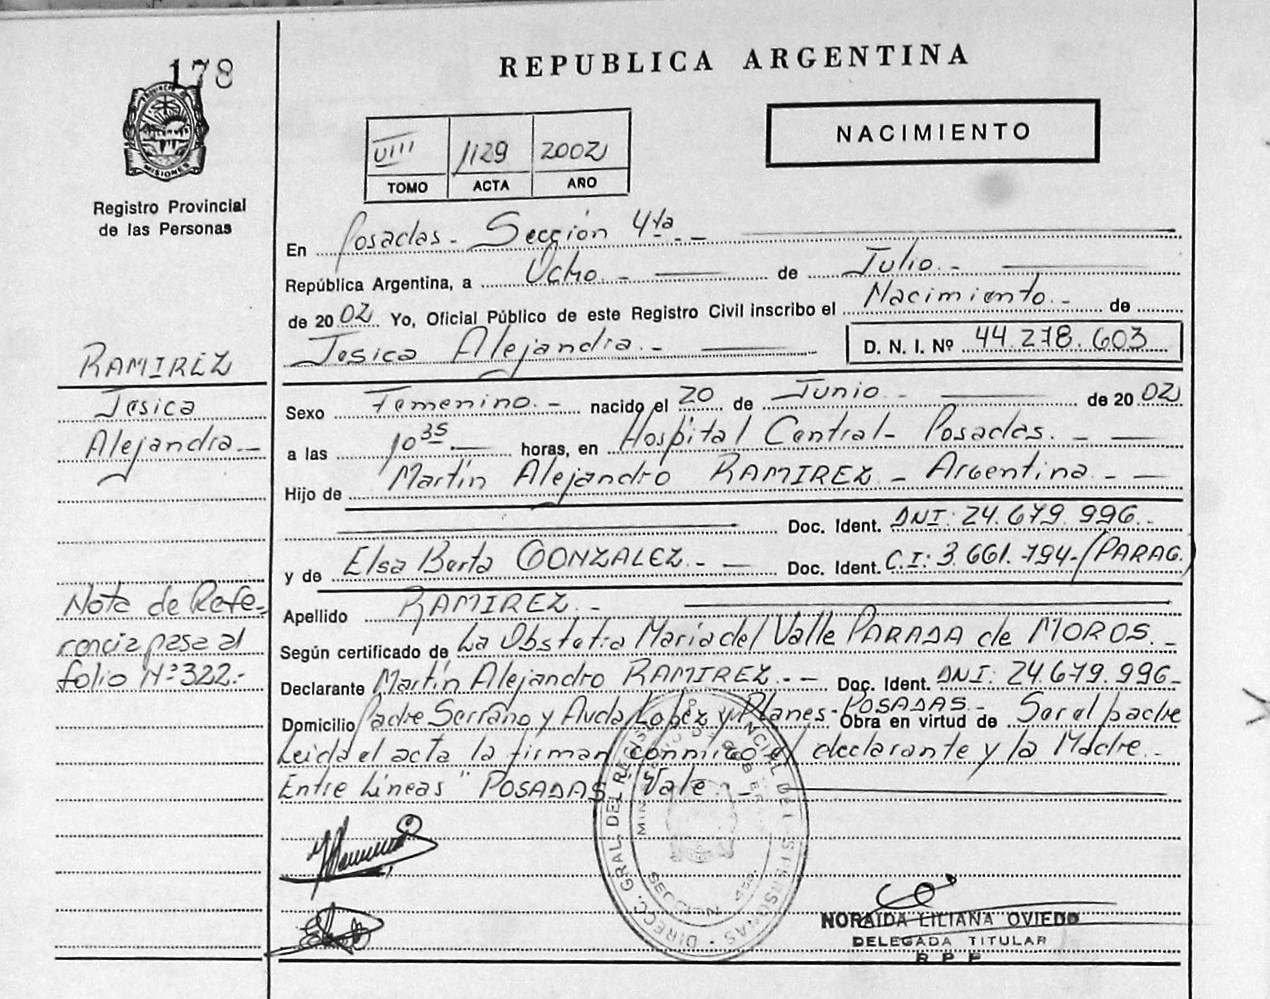 178
PROVINCIA
MISIONES
Registro Provincial
de las Personas
REPUBLICA ARGENTINA
NACIMIENTO
VIII 1129 2002
TOMO ACTA AÑO
En Posadas - Sección 4ta -
República Argentina, a Ocho - de Julio -
de 2002 Yo, Oficial Público de este Registro Civil inscribo el Nacimiento - de
Jesica Alejandra - D. N. I. Nº 44.278.603
Sexo Femenino - nacido el 20 de Junio - de 2002
a las 10 35 horas, en Hospital Central - Posadas. -
Hijo de Martín Alejandro RAMIREZ - Argentina -
Doc. Ident. DNI: 24.679.996 -
y de Elsa Berta GONZALEZ - Doc. Ident. C.I: 3.661.794-(PARAG.)
Apellido RAMIREZ. -
Según certificado de La Obstetra María del Valle PARADA de MOROS. -
Declarante Martín Alejandro RAMIREZ. - Doc. Ident. DNI: 24.679.996 -
Domicilio Padre Serrano y Avda López y Planes - POSADAS - Obra en virtud de Ser el padre
Leida el acta la firman conmigo el declarante y la Madre. -
Entre Líneas "POSADAS" Vale -
RAMIREZ
Jesica
Alejandra -
Nota de Refe-
rencia pasa al
folio Nº 322.-
DIRECC. GRAL. DEL REGISTRO PROVINCIAL DE LAS PERSONAS
SECCION 4ta
NORAIDA LILIANA OVIEDO
DELEGADA TITULAR
R P P